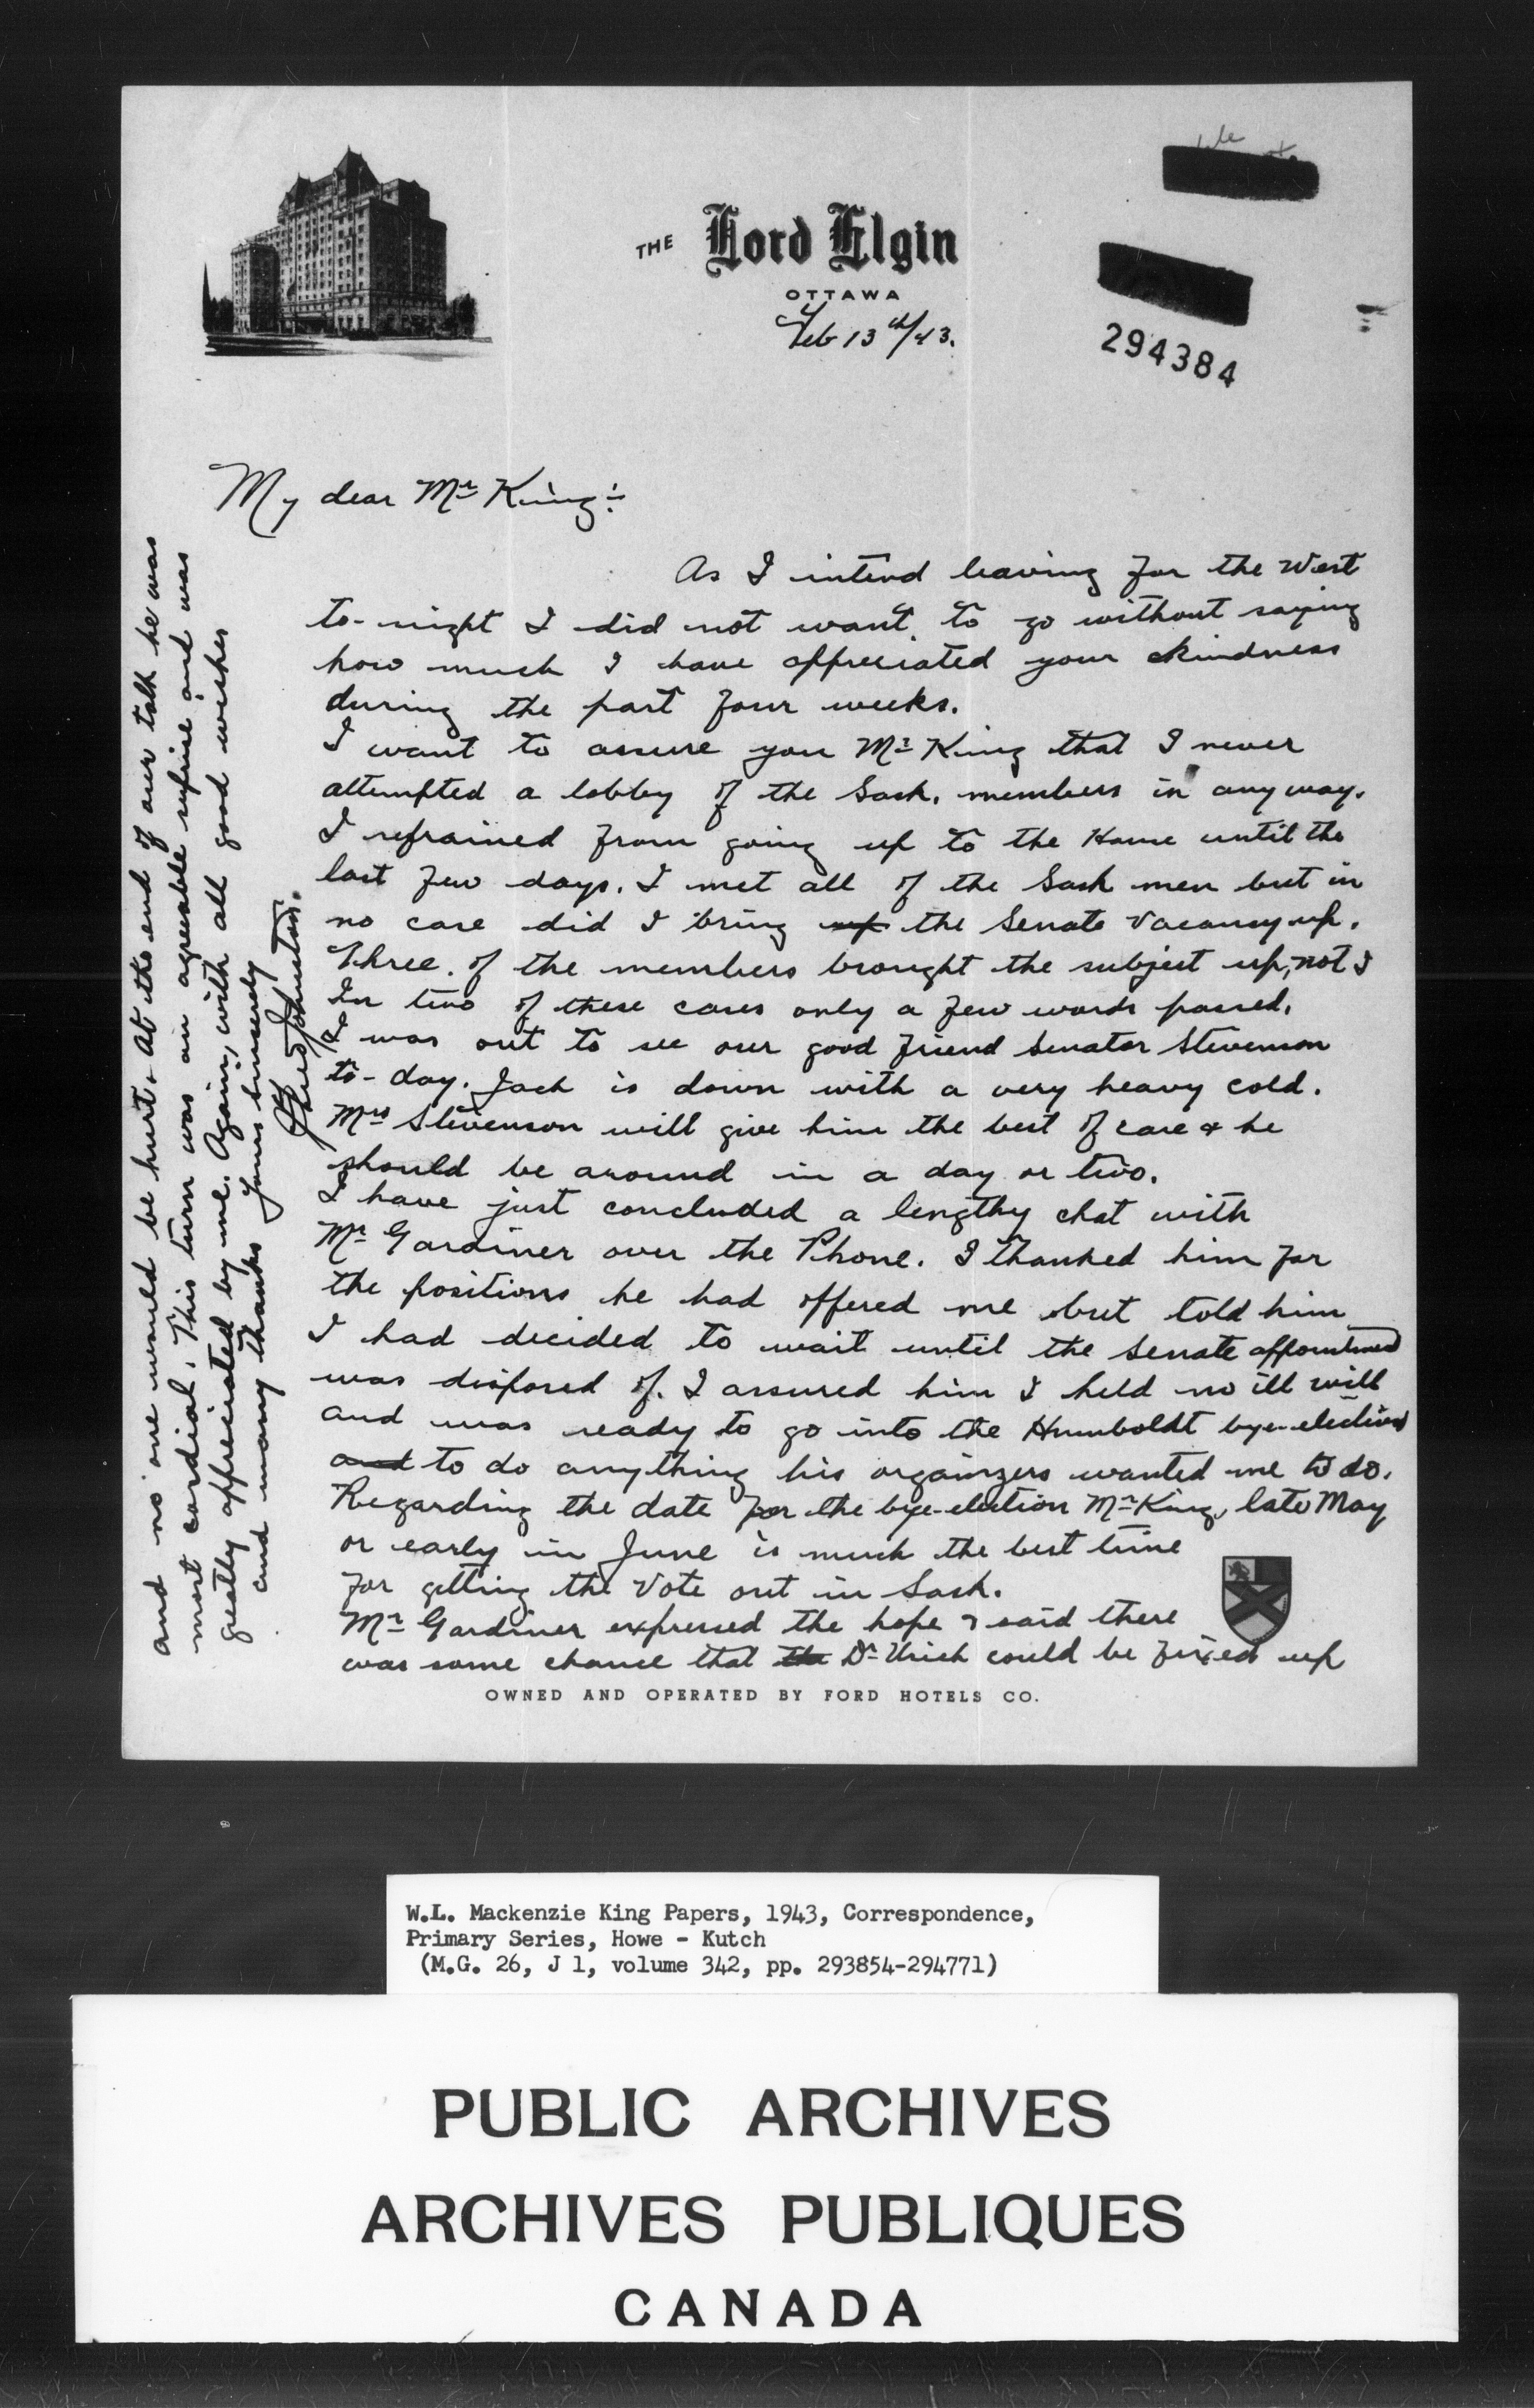 THE Lord Elgin
OTTAWA
Feb 13th/43.
294384
My dear Mr King:-
As I intend leaving for the West
to-night I did not want to go without saying
how much I have appreciated your kindness
during the past four weeks.
I want to assure you Mr King that I never
attempted a lobby of the Sask. members in any way.
I refrained from going up to the House until the
last few days. I met all of the Sask men but in
no case did I bring up the Senate Vacancy up.
Three of the members brought the subject up, not I
In two of these cases only a few words passed.
I was out to see our good friend Senator Stevenson
to-day. Jack is down with a very heavy cold.
Mrs Stevenson will give him the best of care & he
should be around in a day or two.
I have just concluded a lengthy chat with
Mr Gardiner over the Phone. I thanked him for
the positions he had offered me but told him
I had decided to wait until the Senate appointment
was disposed of. I assured him I held no ill will
and was ready to go into the Humboldt bye-election
and to do anything his organizers wanted me to do.
Regarding the date for the bye-election Mr King, late May
or early in June is much the best time
for getting the Vote out in Sask.
Mr Gardiner expressed the hope & said there
was some chance that the Dr Urich could be fixed up
and no one would be hurt & at the end of our talk he was
most cordial. This turn was an agreeable suprise and was
greatly appreciated by me. Again, with all good wishes
and many thanks Yours Sincerely
Fred Johnston.
OWNED AND OPERATED BY FORD HOTELS CO.
W.L. Mackenzie King Papers, 1943, Correspondence,
Primary Series, Howe - Kutch
(M.G. 26, J 1, volume 342, pp. 293854-294771)
PUBLIC ARCHIVES
ARCHIVES PUBLIQUES
CANADA